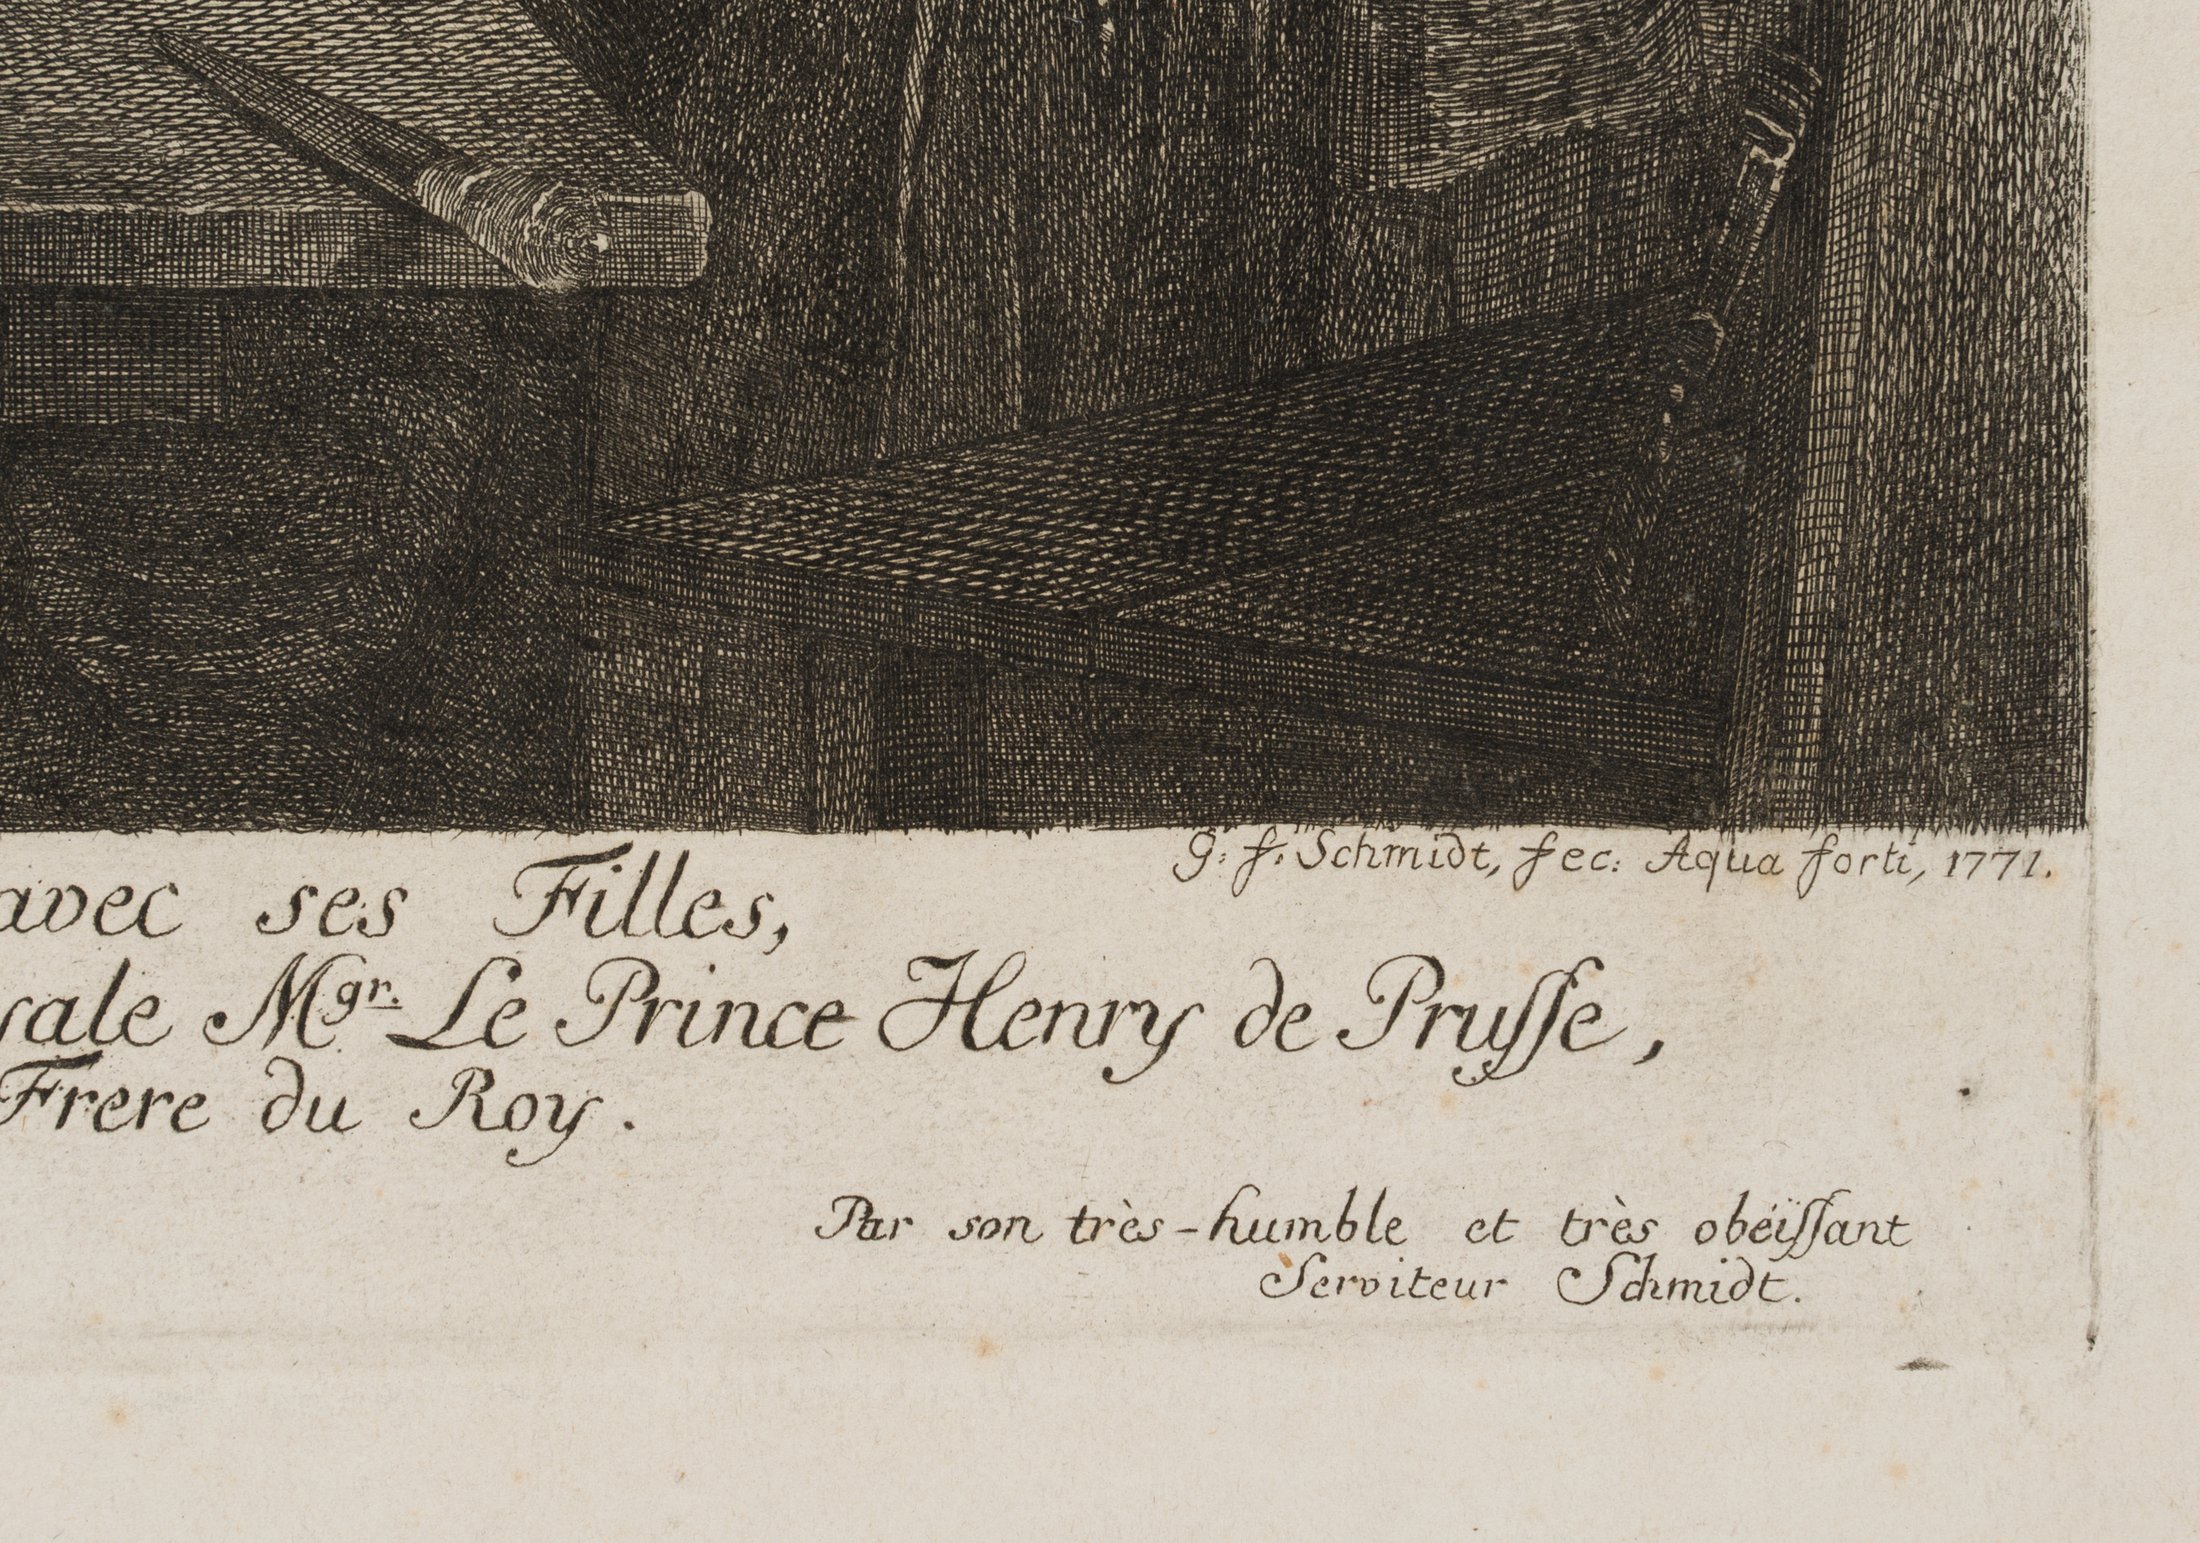 G: f: Schmidt, fec: Aqua forti, 1771.
avec ses Filles,
yale Mgr. Le Prince Henry de Pruſſe,
Frere du Roy.
Par son très-humble et très obéïſſant
Serviteur Schmidt.